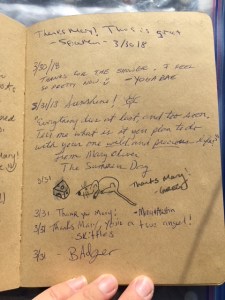 Thanks Mary! This is great
- 3/30/18
3/30/18
THANKS FOR THE SHOWER. I FEEL
SO PRETTY NOW :)
YOGA BAE
3/31/18 Sunshine!
"Everything dies at last, and too soon.
Tell me what is it you plan to do
with your one wild and precious life?"
from Mary Oliver
The Summer Day
3/31
Thanks Mary!
3/31 Thank you Mary!
3/31 Thanks Mary, you're a true angel!
SKITTLES
3/31 - BAdger